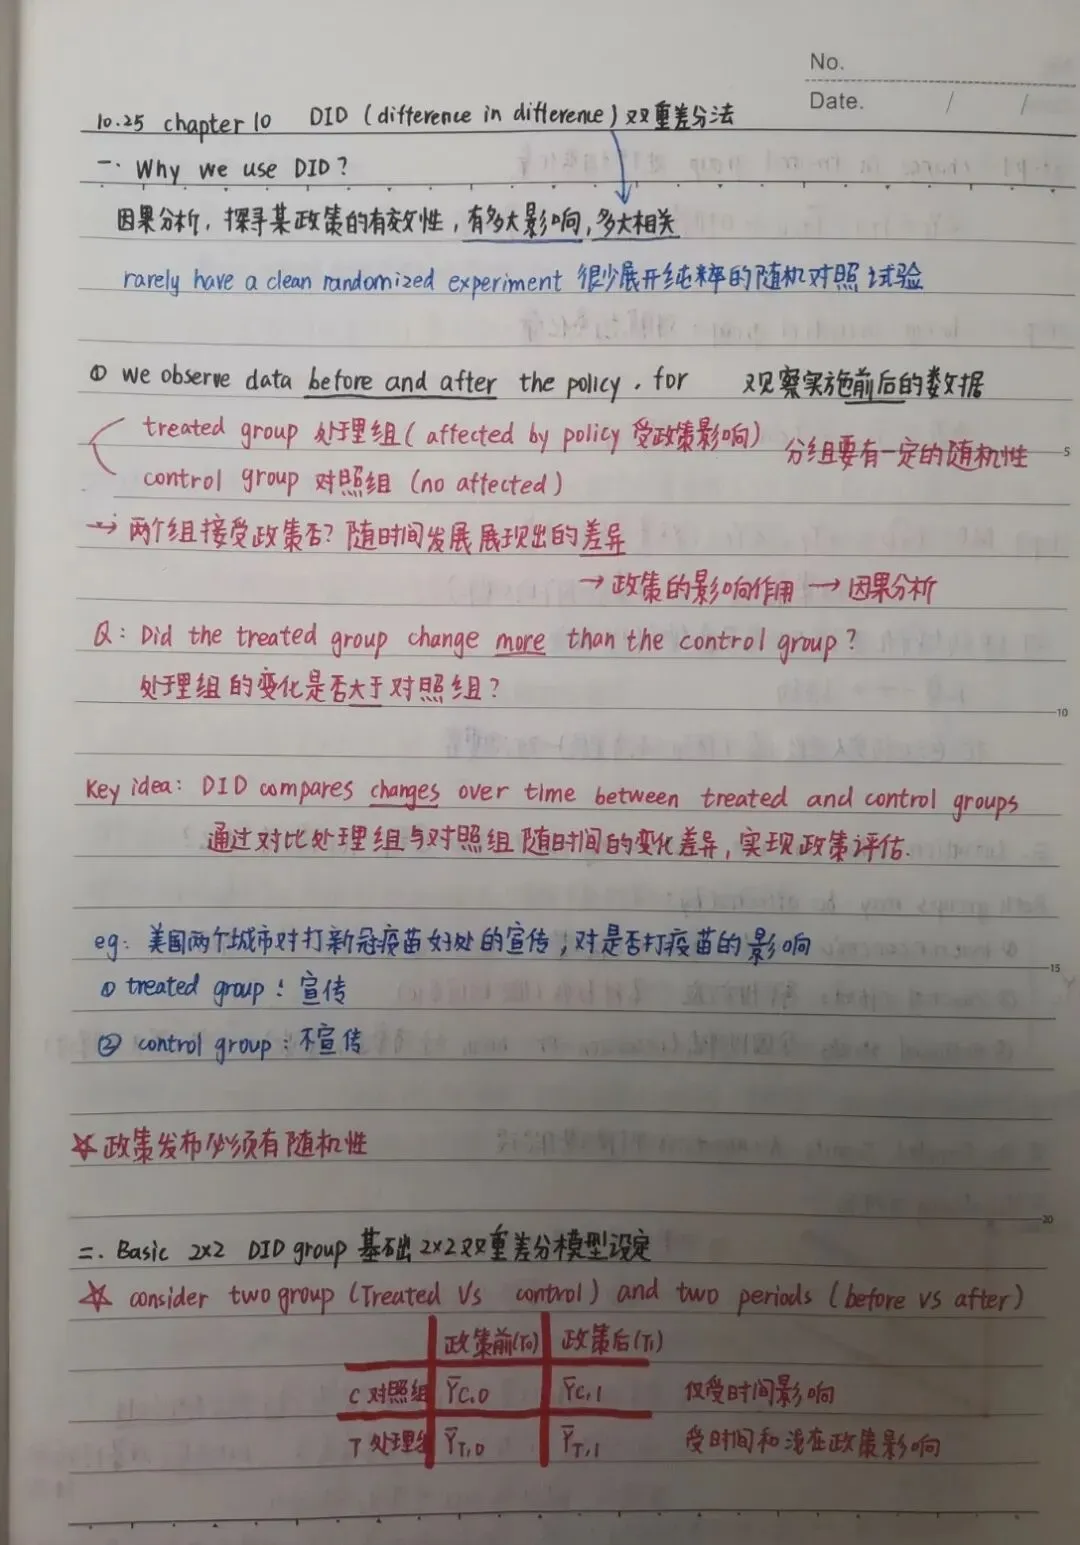 No.
Date. / /
10.25 chapter 10 DID (difference in difference) 双重差分法
一. Why we use DID?
因果分析，探寻某政策的有效性，有多大影响，多大相关
rarely have a clean randomized experiment 很少展开纯粹的随机对照试验
① we observe data before and after the policy. for 观察实施前后的数据
treated group 处理组 (affected by policy 受政策影响)
分组要有一定的随机性
control group 对照组 (no affected)
→ 两个组接受政策否？随时间发展展现出的差异
→ 政策的影响作用 → 因果分析
Q: Did the treated group change more than the control group?
处理组的变化是否大于对照组？
Key idea: DID compares changes over time between treated and control groups
通过对比处理组与对照组随时间的变化差异，实现政策评估.
eg: 美国两个城市对打新冠疫苗好处的宣传，对是否打疫苗的影响
① treated group: 宣传
② control group: 不宣传
☆ 政策发布必须有随机性
二. Basic 2x2 DID group 基础2x2双重差分模型设定
☆ consider two group (Treated Vs control) and two periods (before vs after)
政策前(T₀) 政策后(T₁)
C 对照组 Ȳc,0 Ȳc,1 仅受时间影响
T 处理组 ȲT,0 ȲT,1 受时间和潜在政策影响
5
10
15
20